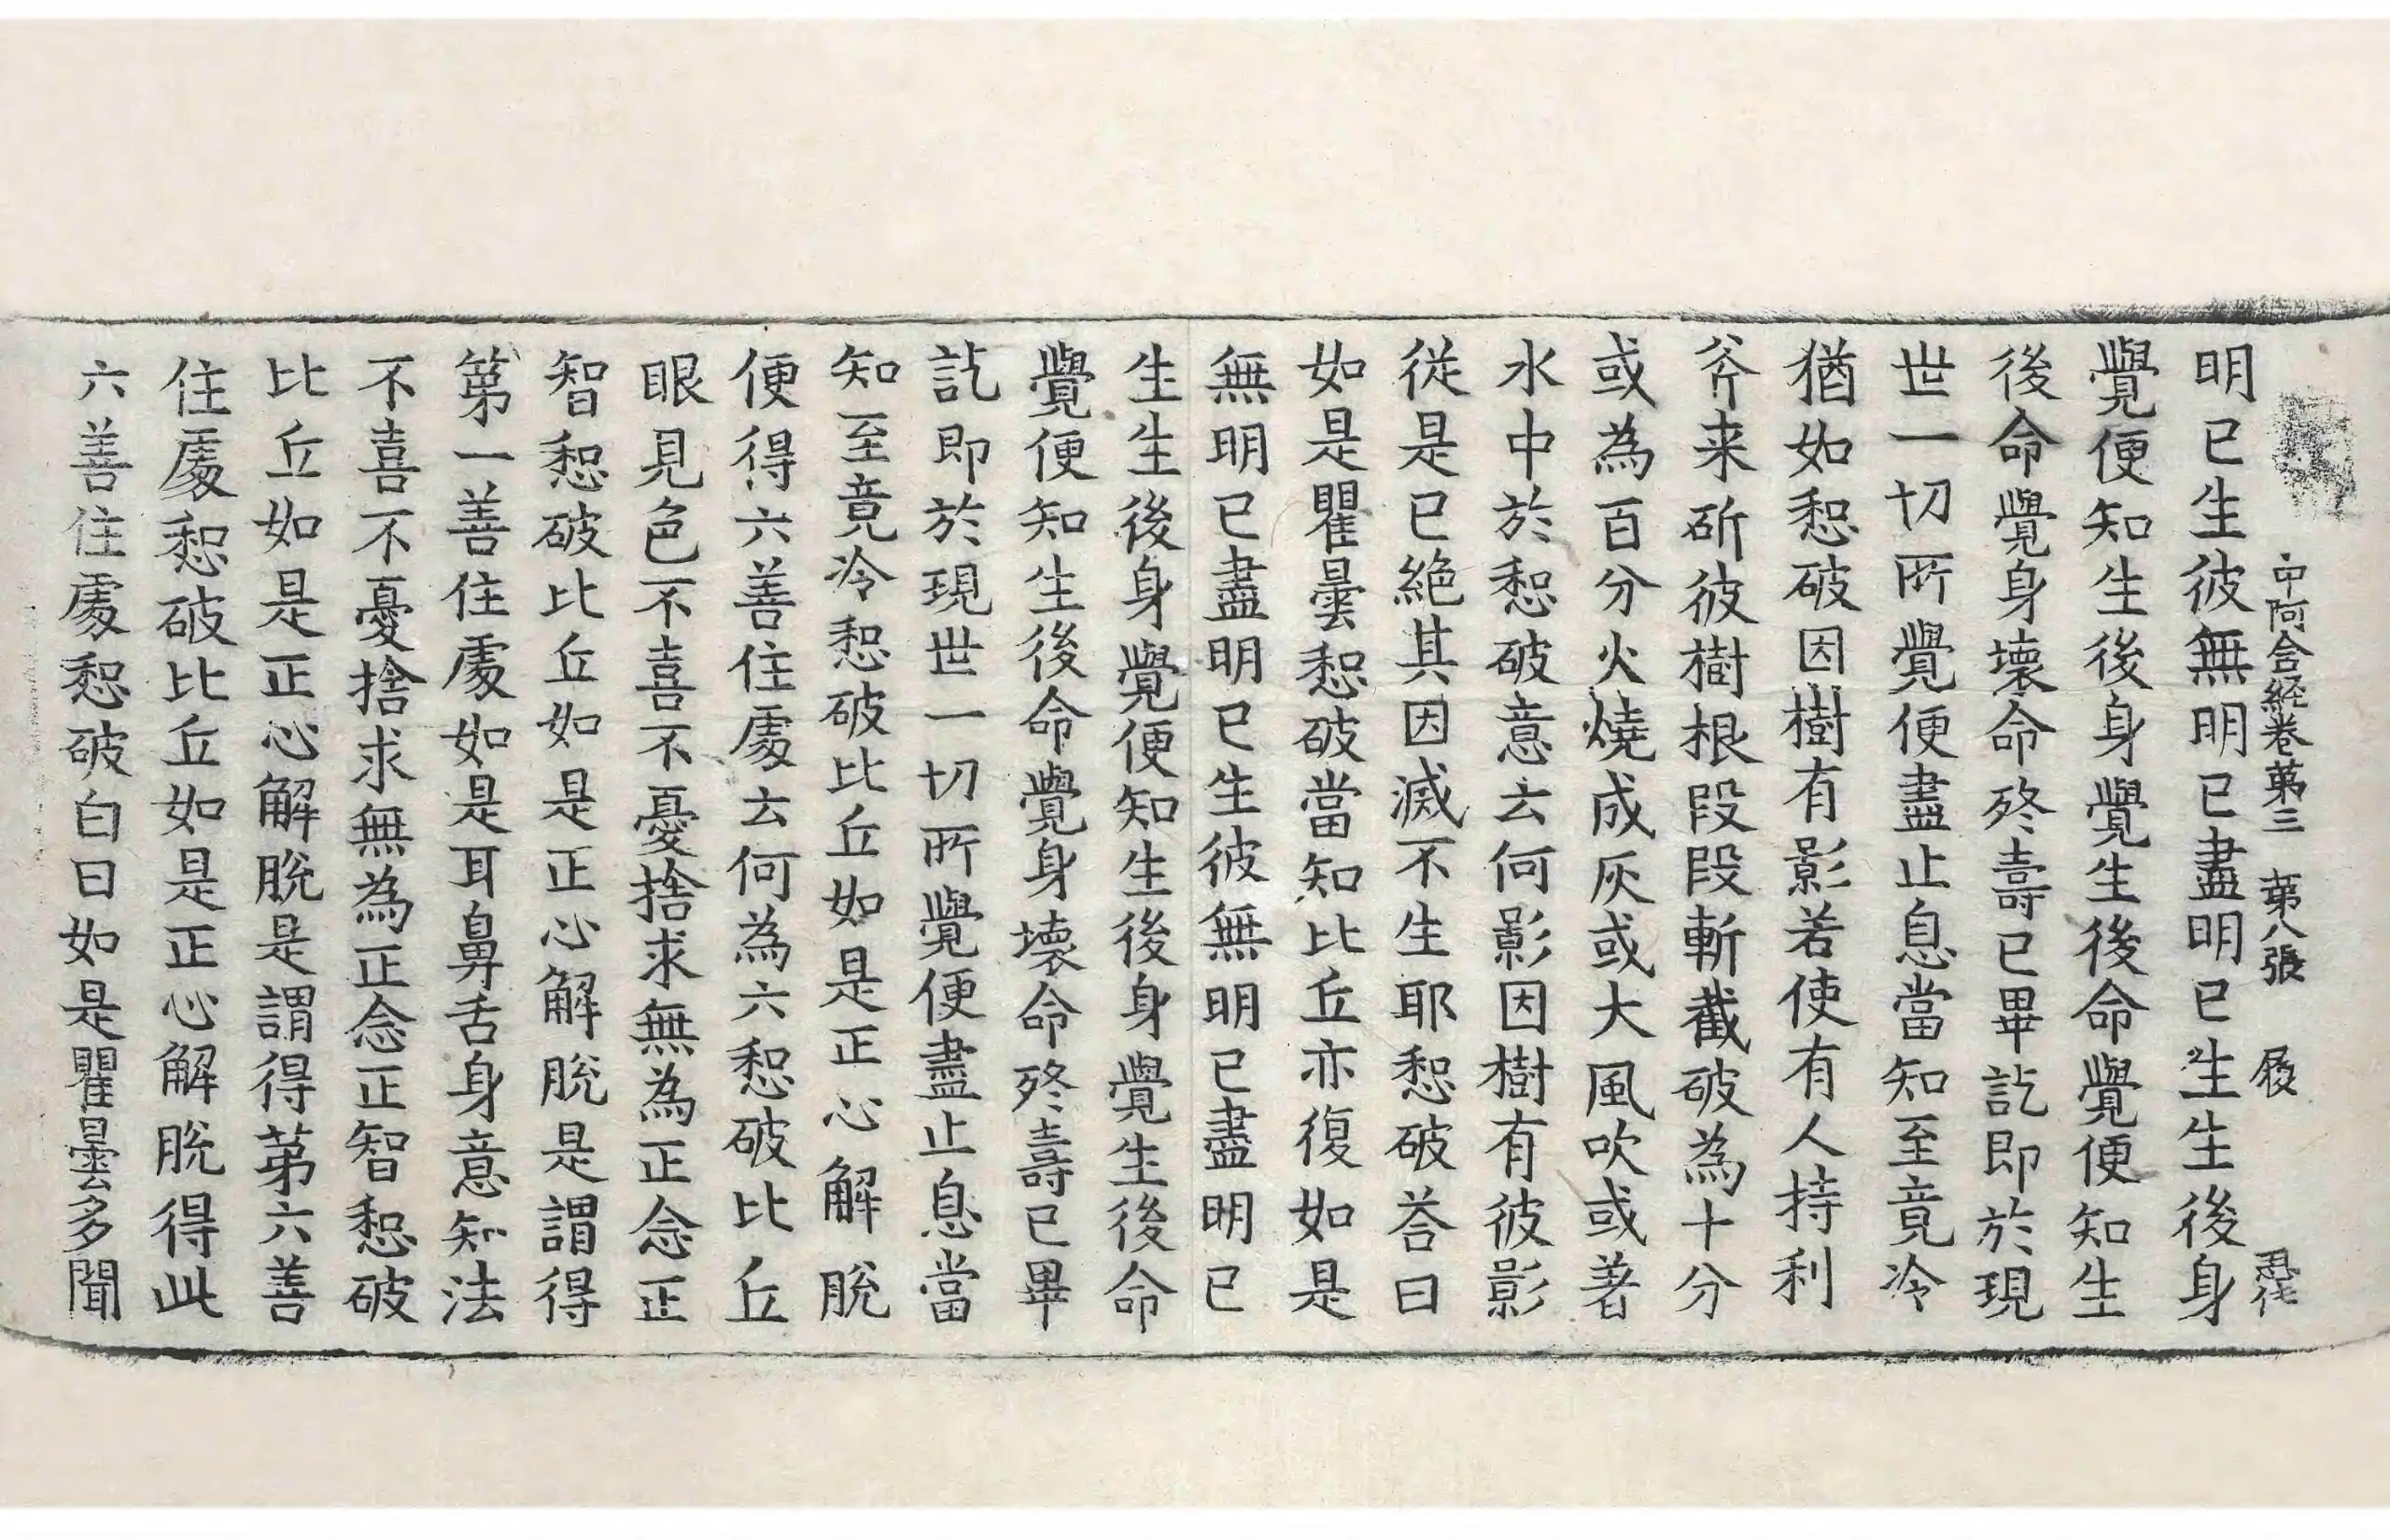 中阿含経卷苐三　苐八張　　履
明已生彼無明已盡明已生生後身
覺便知生後身覺生後命覺便知生
後命覺身壞命終壽已畢訖即於現
世一切所覺便盡止息當知至竟冷
猶如惒破因樹有影若使有人持利
斧来斫彼樹根段段斬截破為十分
或為百分火燒成灰或大風吹或著
水中於惒破意云何影因樹有彼影
従是已絕其因滅不生耶惒破荅曰
如是瞿曇惒破當知比丘亦復如是
無明已盡明已生彼無明已盡明已
生生後身覺便知生後身覺生後命
覺便知生後命覺身壞命終壽已畢
訖即於現世一切所覺便盡止息當
知至竟冷惒破比丘如是正心解脫
便得六善住處云何為六惒破比丘
眼見色不喜不憂捨求無為正念正
智惒破比丘如是正心解脫是謂得
第一善住處如是耳鼻舌身意知法
不喜不憂捨求無為正念正智惒破
比丘如是正心解脫是謂得苐六善
住處惒破比丘如是正心解脫得此
六善住處惒破白曰如是瞿曇多聞